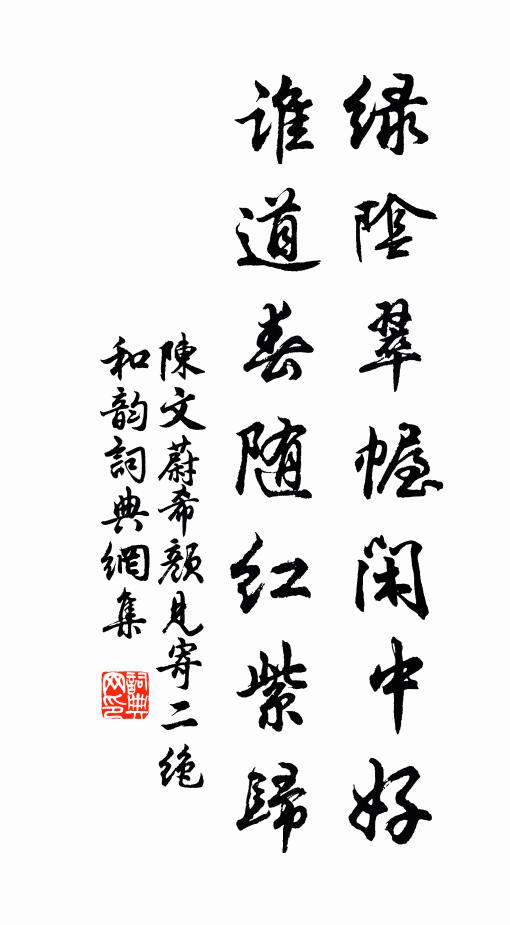 绿陰翠幄闲中好
谁道春随红紫歸
陳文蔚希颜見寄二绝
和韵詞典網集
詞典网印